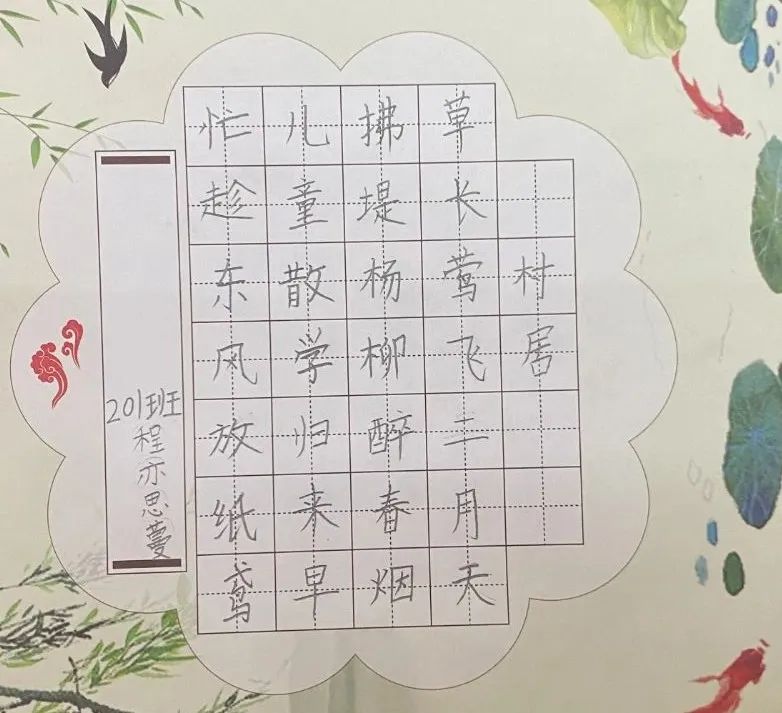 村居
草长莺飞二月天
拂堤杨柳醉春烟
儿童散学归来早
忙趁东风放纸鸢
201班
程亦思蔓